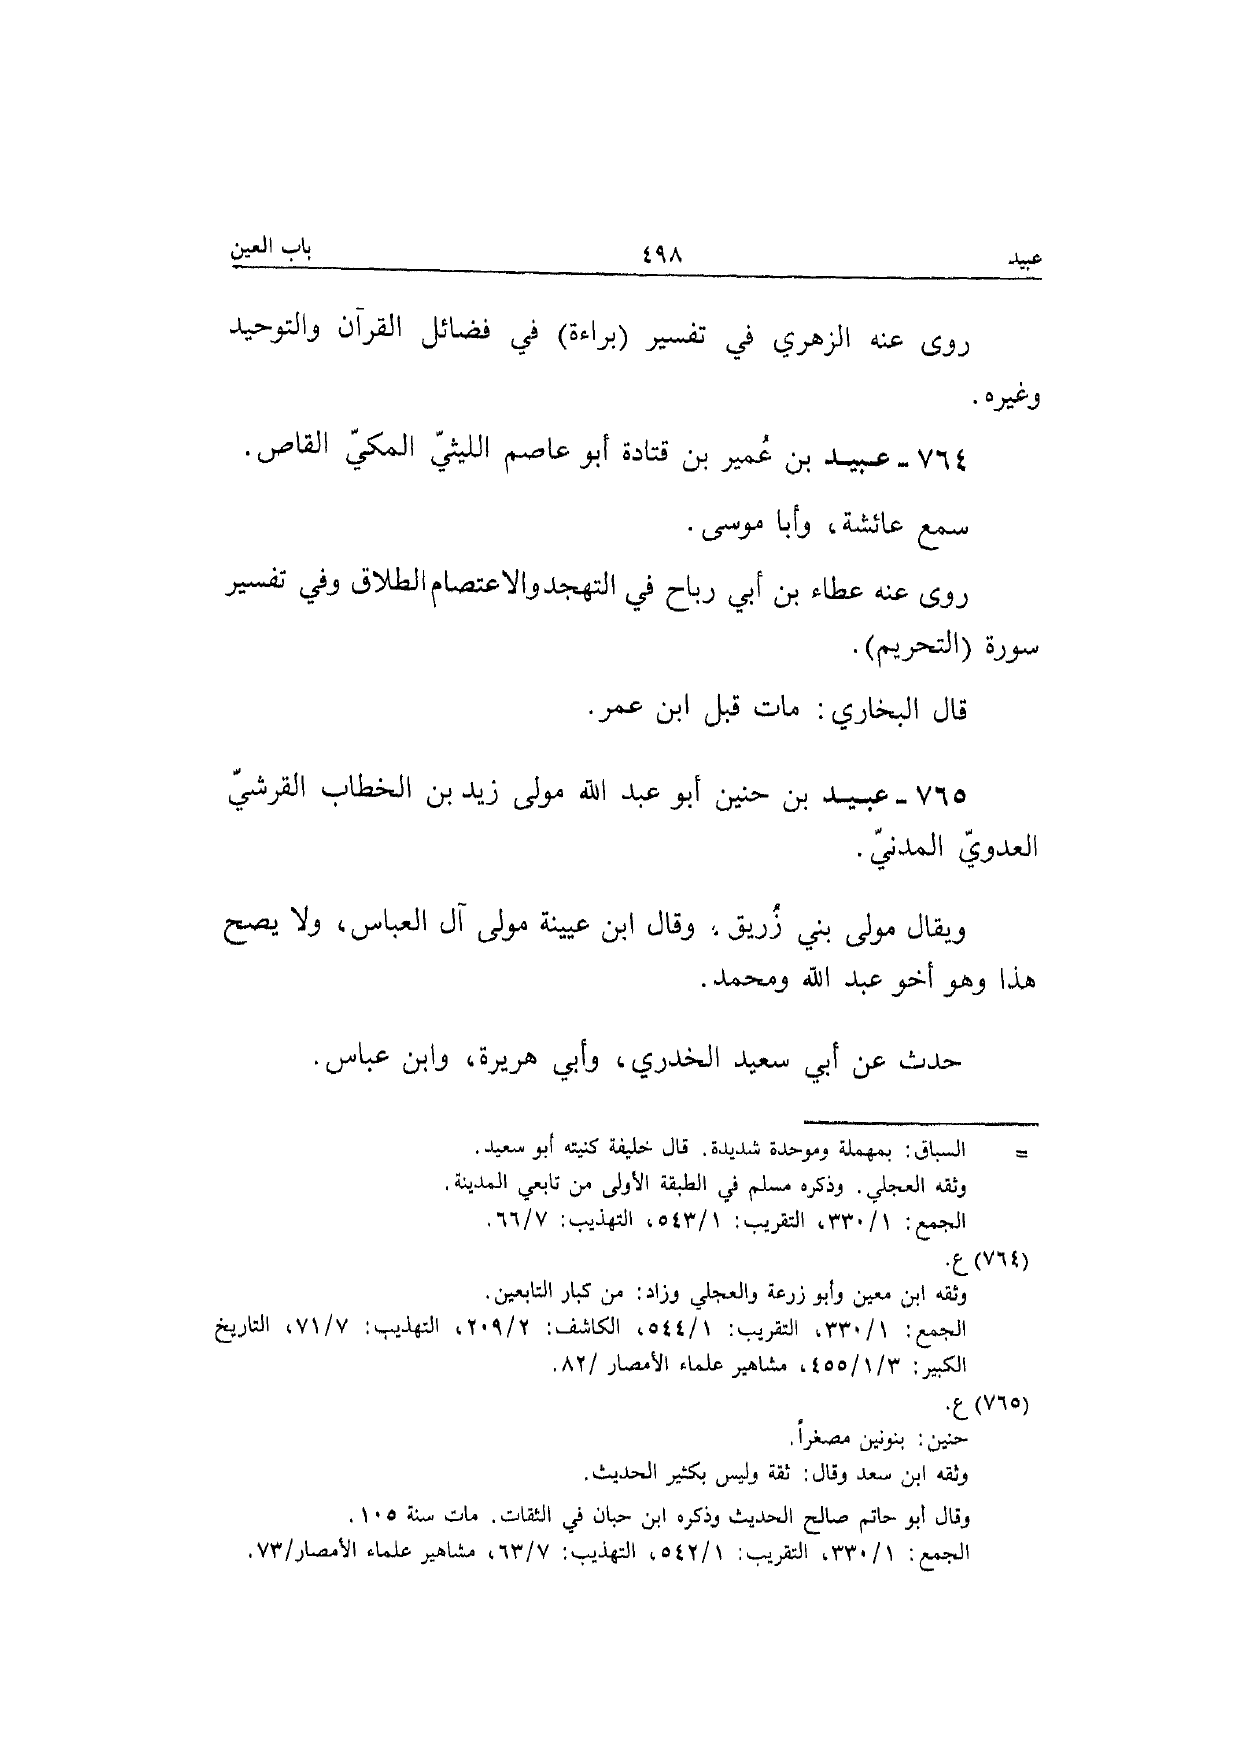 عبيد ٤٩٨ باب العين
روى عنه الزهري في تفسير (براءة) في فضائل القرآن والتوحيد
وغيره.
٧٦٤ - عبيد بن عُمير بن قتادة أبو عاصم الليثيّ المكيّ القاص.
سمع عائشة، وأبا موسى.
روى عنه عطاء بن أبي رباح في التهجد والاعتصام الطلاق وفي تفسير
سورة (التحريم).
قال البخاري: مات قبل ابن عمر.
٧٦٥ - عبيد بن حنين أبو عبد الله مولى زيد بن الخطاب القرشيّ
العدويّ المدنيّ.
ويقال مولى بني زُريق، وقال ابن عيينة مولى آل العباس، ولا يصح
هذا وهو أخو عبد الله ومحمد.
حدث عن أبي سعيد الخدري، وأبي هريرة، وابن عباس.
= السباق: بمهملة وموحدة شديدة. قال خليفة كنيته أبو سعيد.
وثقه العجلي. وذكره مسلم في الطبقة الأولى من تابعي المدينة.
الجمع: ٣٣٠/١، التقريب: ٥٤٣/١، التهذيب: ٦٦/٧.
(٧٦٤) ع.
وثقه ابن معين وأبو زرعة والعجلي وزاد: من كبار التابعين.
الجمع: ٣٣٠/١، التقريب: ٥٤٤/١، الكاشف: ٢٠٩/٢، التهذيب: ٧١/٧، التاريخ
الكبير: ٤٥٥/١/٣، مشاهير علماء الأمصار /٨٢.
(٧٦٥) ع.
حنين: بنونين مصغراً.
وثقه ابن سعد وقال: ثقة وليس بكثير الحديث.
وقال أبو حاتم صالح الحديث وذكره ابن حبان في الثقات. مات سنة ١٠٥.
الجمع: ٣٣٠/١، التقريب: ٥٤٢/١، التهذيب: ٦٣/٧، مشاهير علماء الأمصار/٧٣.